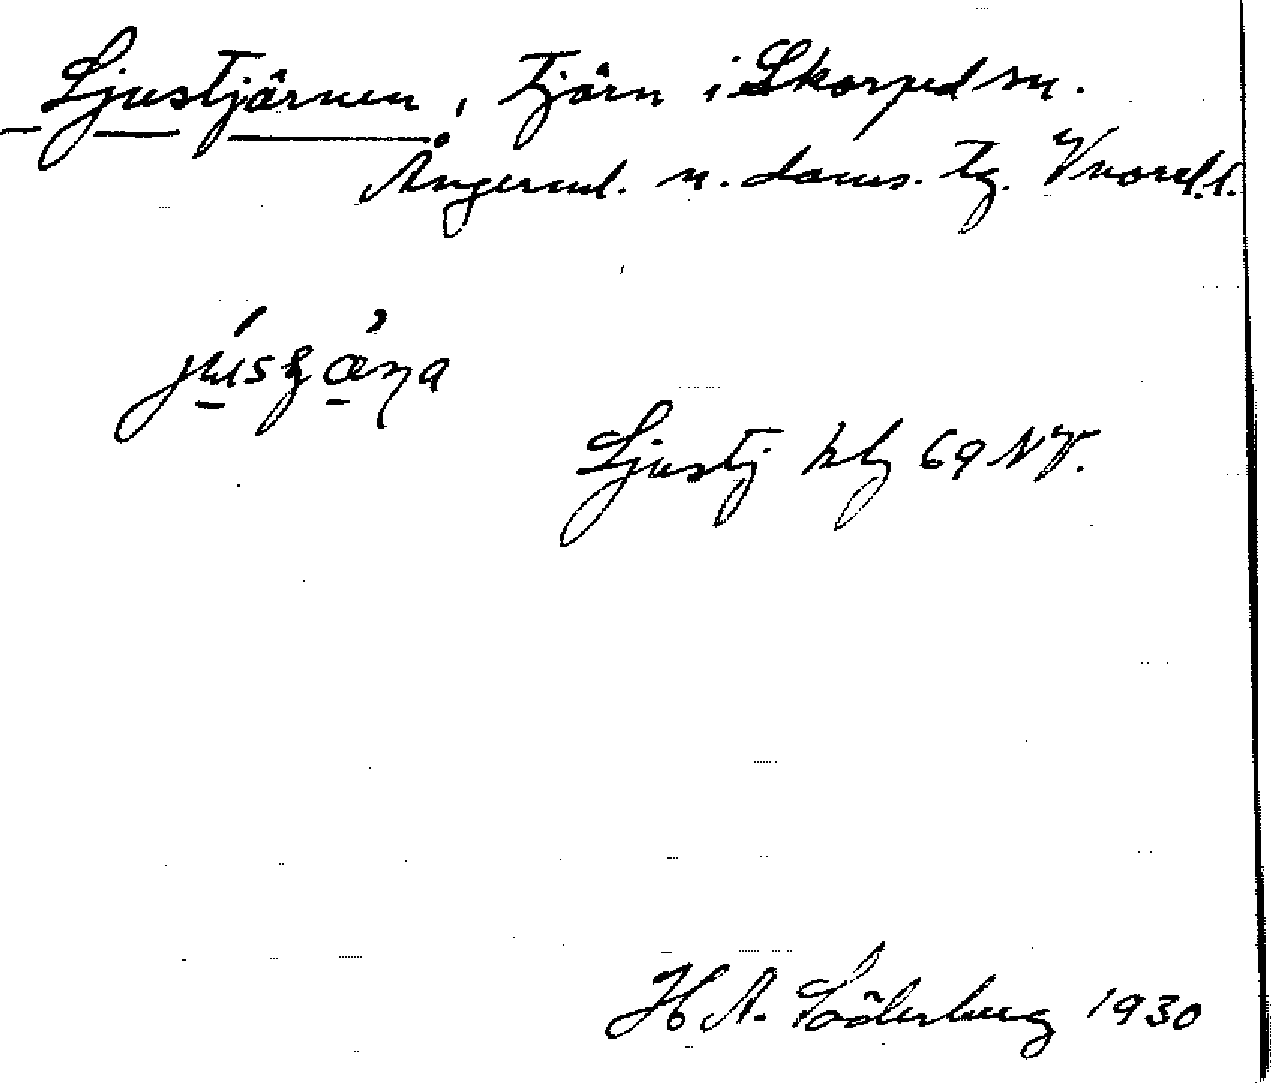 Ljustjärnen, tjärn i Skorped sn.
Ångerml. n. doms. tg. Vnorrl. l.
Ljustj kbl 69 NV.
H A. Söderberg 1930